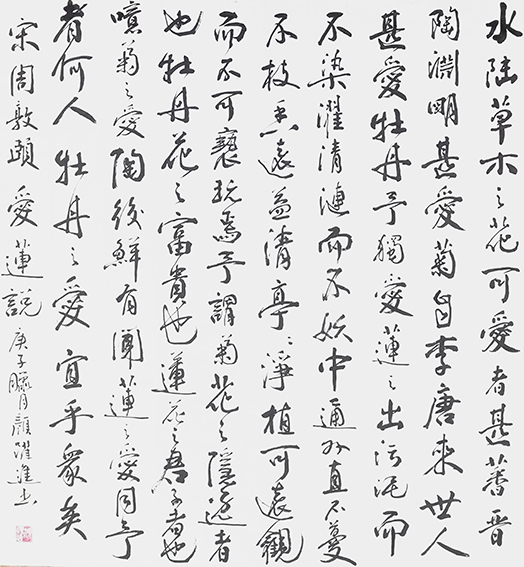 水陸草木之花可愛者甚蕃晋
陶淵明甚愛菊自李唐来世人
甚愛牡丹予獨愛蓮之出污泥而
不染濯清漣而不妖中通外直不蔓
不枝香遠益清亭〻淨植可遠觀
而不可褻玩焉予謂菊花之隱逸者
也牡丹花之富貴也蓮花之君子者也
噫菊之愛陶後鮮有聞蓮之愛同予
者何人牡丹之愛宜乎衆矣
宋周敦頤愛蓮說 庚子臘月顏躍進書